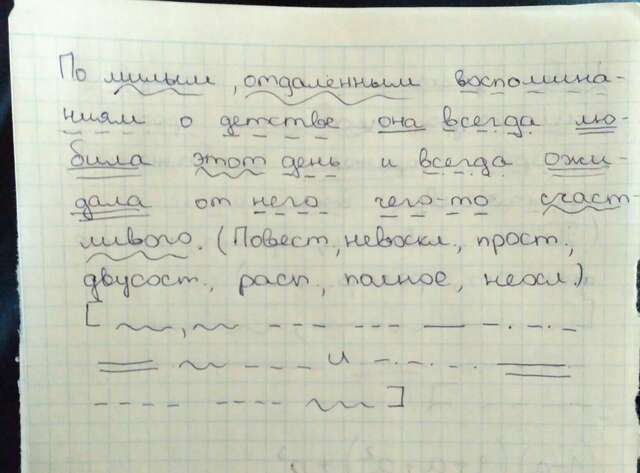 По милым, отдалённым воспомина-
ниям о детстве она всегда лю-
била этот день и всегда ожи-
дала от него чего-то счаст-
ливого. (Повест., невоскл., прост.,
двусост., расп., полное, неосл.)
[ , и
]